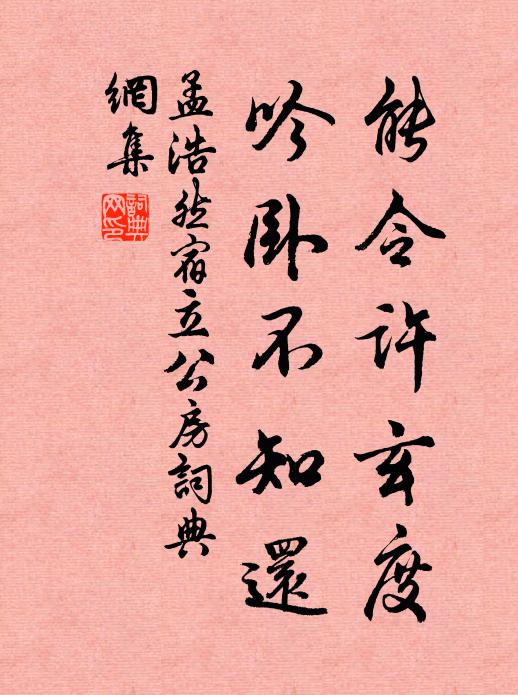 能令許玄度
吟卧不知還
孟浩然宿立公房詞典
網集
詞典
网印